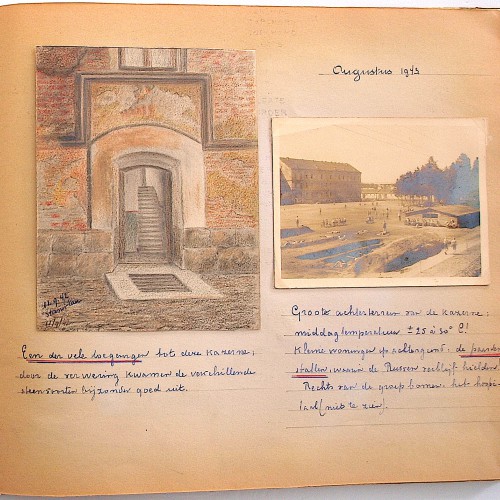 Augustus 1943
Een der vele toegangen tot deze kazerne;
door de verwering kwamen de verschillende
steensoorten bijzonder goed uit.
Groote achterterrein van de kazerne;
middagtemperatuur ± 25 à 30° C!
Kleine woningen op achtergrond: de paarden
stallen, waarin de Russen verblijf hielden
Rechts van de groep bomen: het hospi
taal (niet te zien).